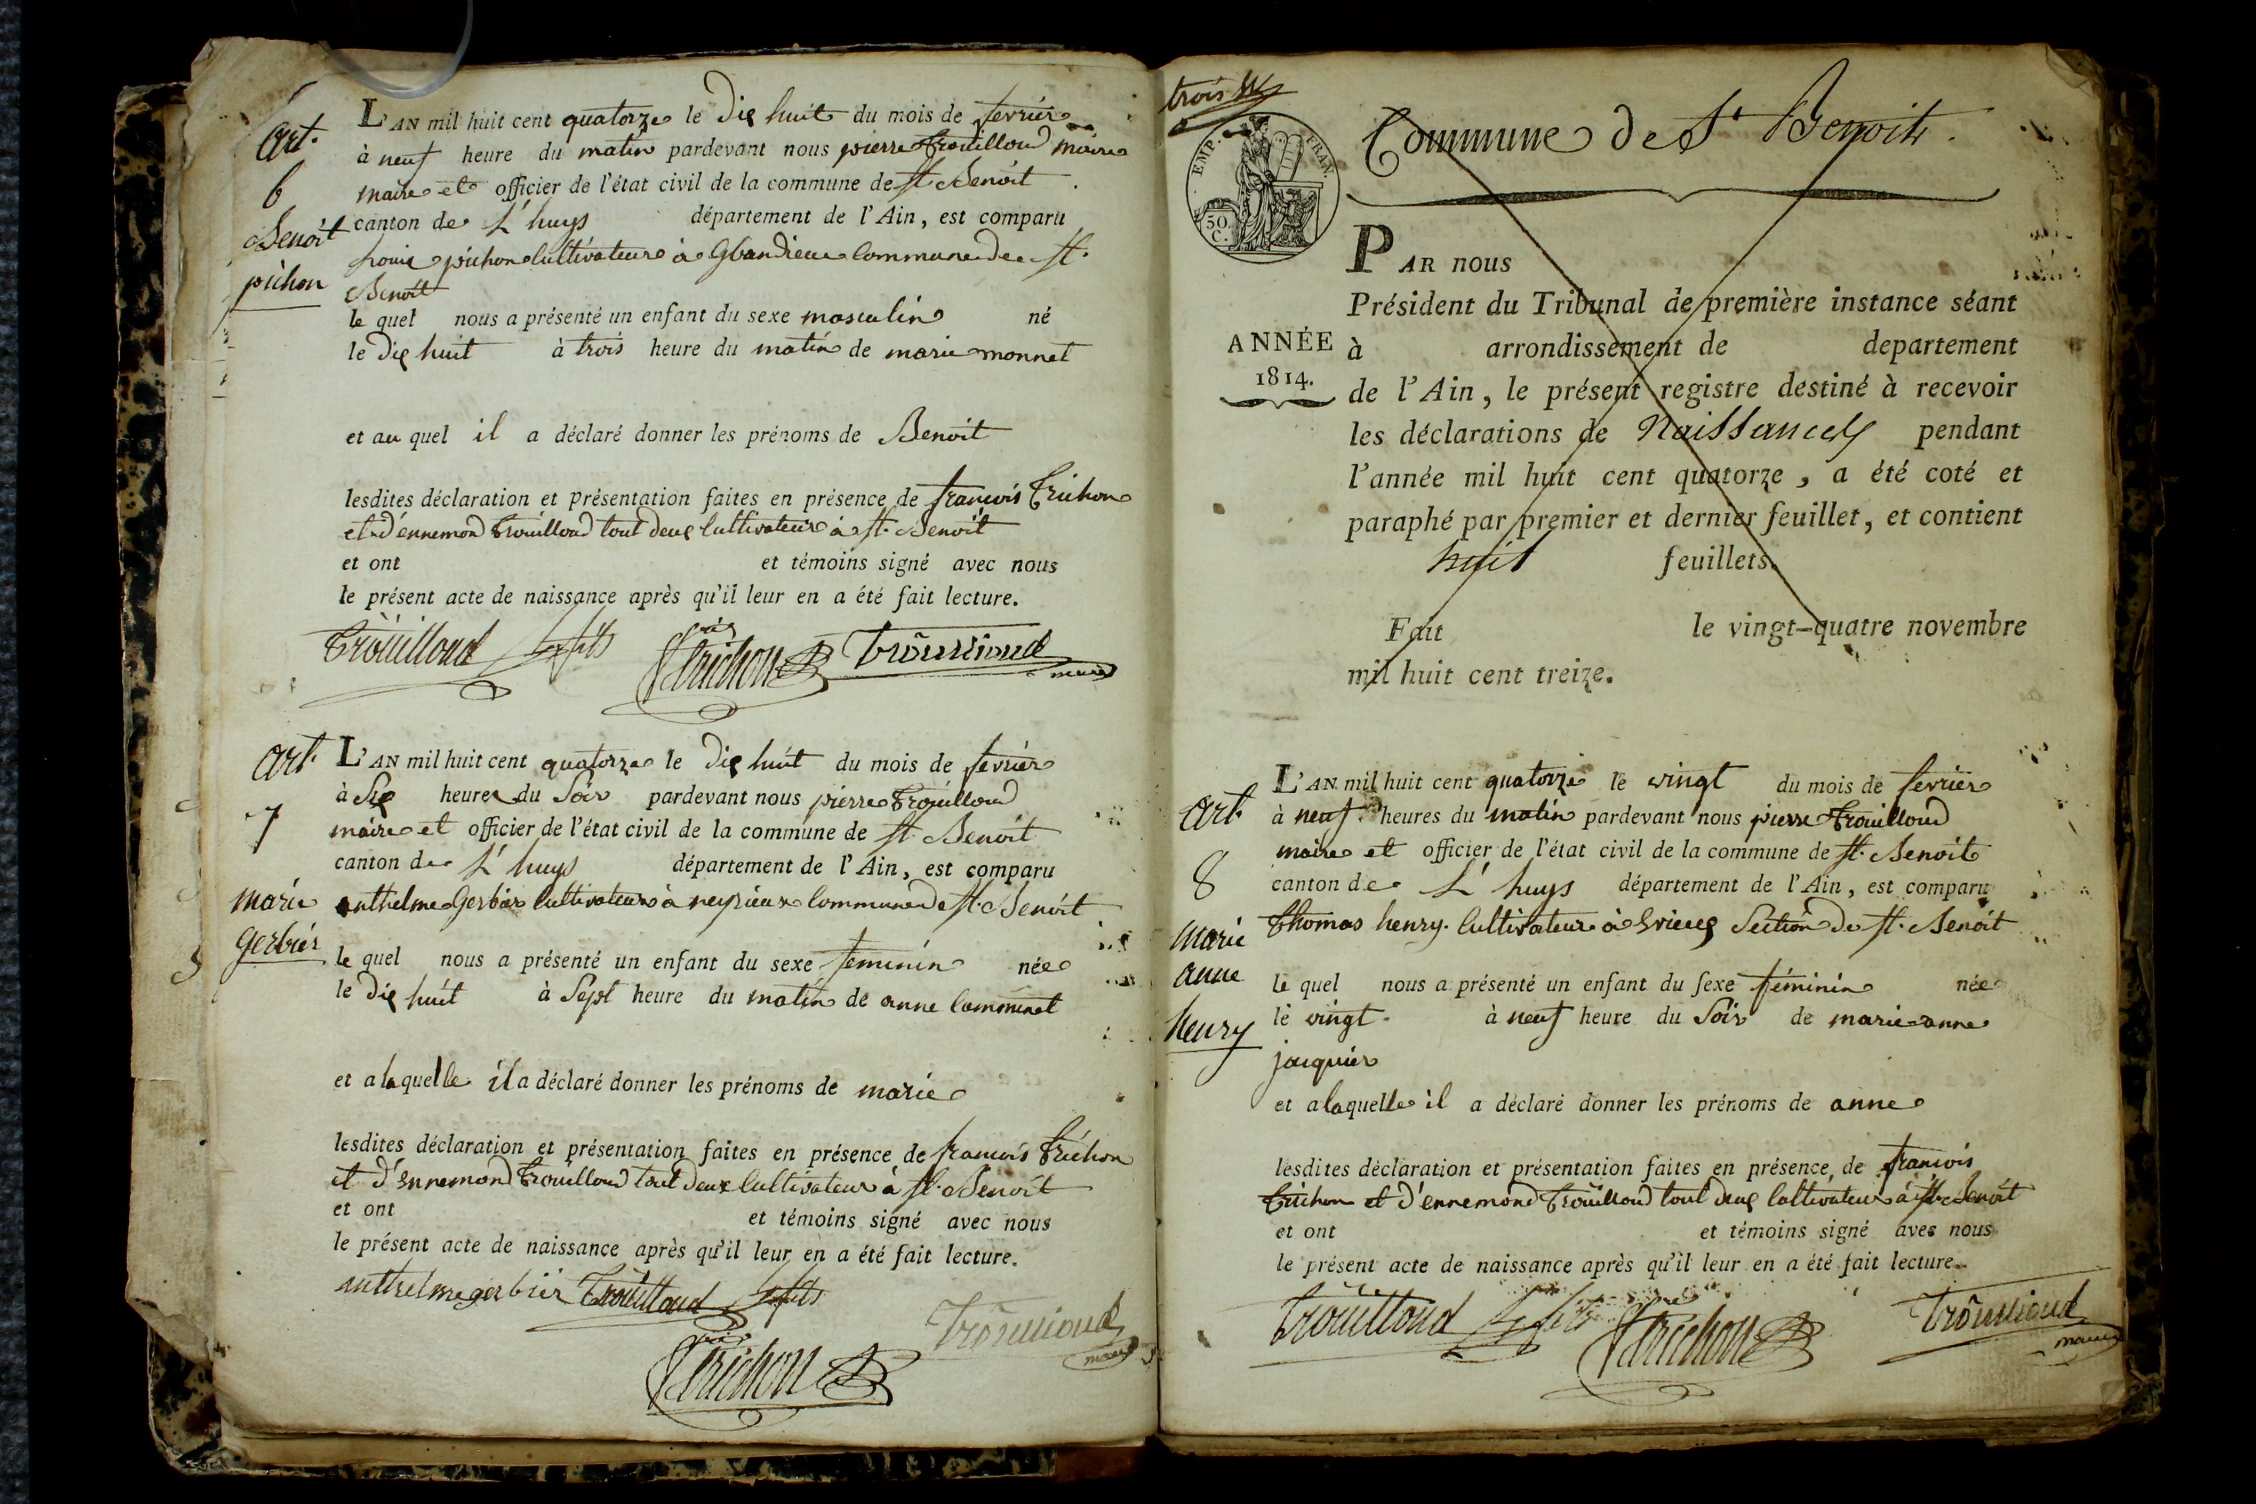 Art.
6
Benoit
pichon
L'AN mil huit cent quatorze le dix huit du mois de fevrier
à neuf heure du matin pardevant nous pierre Trouilloud maire
maire et officier de l'état civil de la commune de st. Benoit
canton de L'huys département de l'Ain, est comparu
Louis pichon Cultivateur à Glandieu Commune de st.
Benoit
le quel nous a présenté un enfant du sexe masculin né
le dix huit à trois heure du matin de marie monnet
et au quel il a déclaré donner les prénoms de Benoit
lesdites déclaration et présentation faites en présence de francois Trichon
et d'ennemond Trouilloud tout deux Cultivateur à st. Benoit
et ont et témoins signé avec nous
le présent acte de naissance après qu'il leur en a été fait lecture.
Trouilloud le fils Trichon Trouilloud
maire
Art.
7
marie
gerbier
L'AN mil huit cent quatorze le dix huit du mois de fevrier
à Six heures du Soir pardevant nous pierre Trouilloud
maire et officier de l'état civil de la commune de st. Benoit
canton de L'huys département de l'Ain, est comparu
anthelme Gerbier Cultivateur à neyrieux Commune de st. Benoit
le quel nous a présenté un enfant du sexe feminin née
le dix huit à Sept heure du matin de anne Comminet
et a laquelle il a déclaré donner les prénoms de marie
lesdites déclaration et présentation faites en présence de francois Trichon
et d'Ennemond Trouilloud tout deux Cultivateur à st. Benoit
et ont et témoins signé avec nous
le présent acte de naissance après qu'il leur en a été fait lecture.
anthelme gerbier Trouilloud le fils
Trichon Trouilloud
maire
trois
EMP. FRAN.
50.
C.
Commune de St Benoit.
ANNÉE
1814.
PAR nous
Président du Tribunal de première instance séant
à arrondissement de departement
de l'Ain, le présent registre destiné à recevoir
les déclarations de Naissances pendant
l'année mil huit cent quatorze, a été coté et
paraphé par premier et dernier feuillet, et contient
huit feuillets.
Fait le vingt-quatre novembre
mil huit cent treize.
Art.
8
Marie
anne
henry
L'AN mil huit cent quatorze le vingt du mois de fevrier
à neuf heures du matin pardevant nous pierre Trouilloud
maire et officier de l'état civil de la commune de st. Benoit
canton de L'huys département de l'Ain, est comparu
Thomas henry. Cultivateur à Evieux Section de st. Benoit
le quel nous a présenté un enfant du sexe féminin née
le vingt à neuf heure du Soir de marie anne
jacquier
et a laquelle il a déclaré donner les prénoms de anne
lesdites déclaration et présentation faites en présence de francois
Trichon et d'ennemond Trouilloud tout deux Cultivateur à st. Benoit
et ont et témoins signé avec nous
le présent acte de naissance après qu'il leur en a été fait lecture.
Trouilloud le fils Trichon Trouilloud
maire